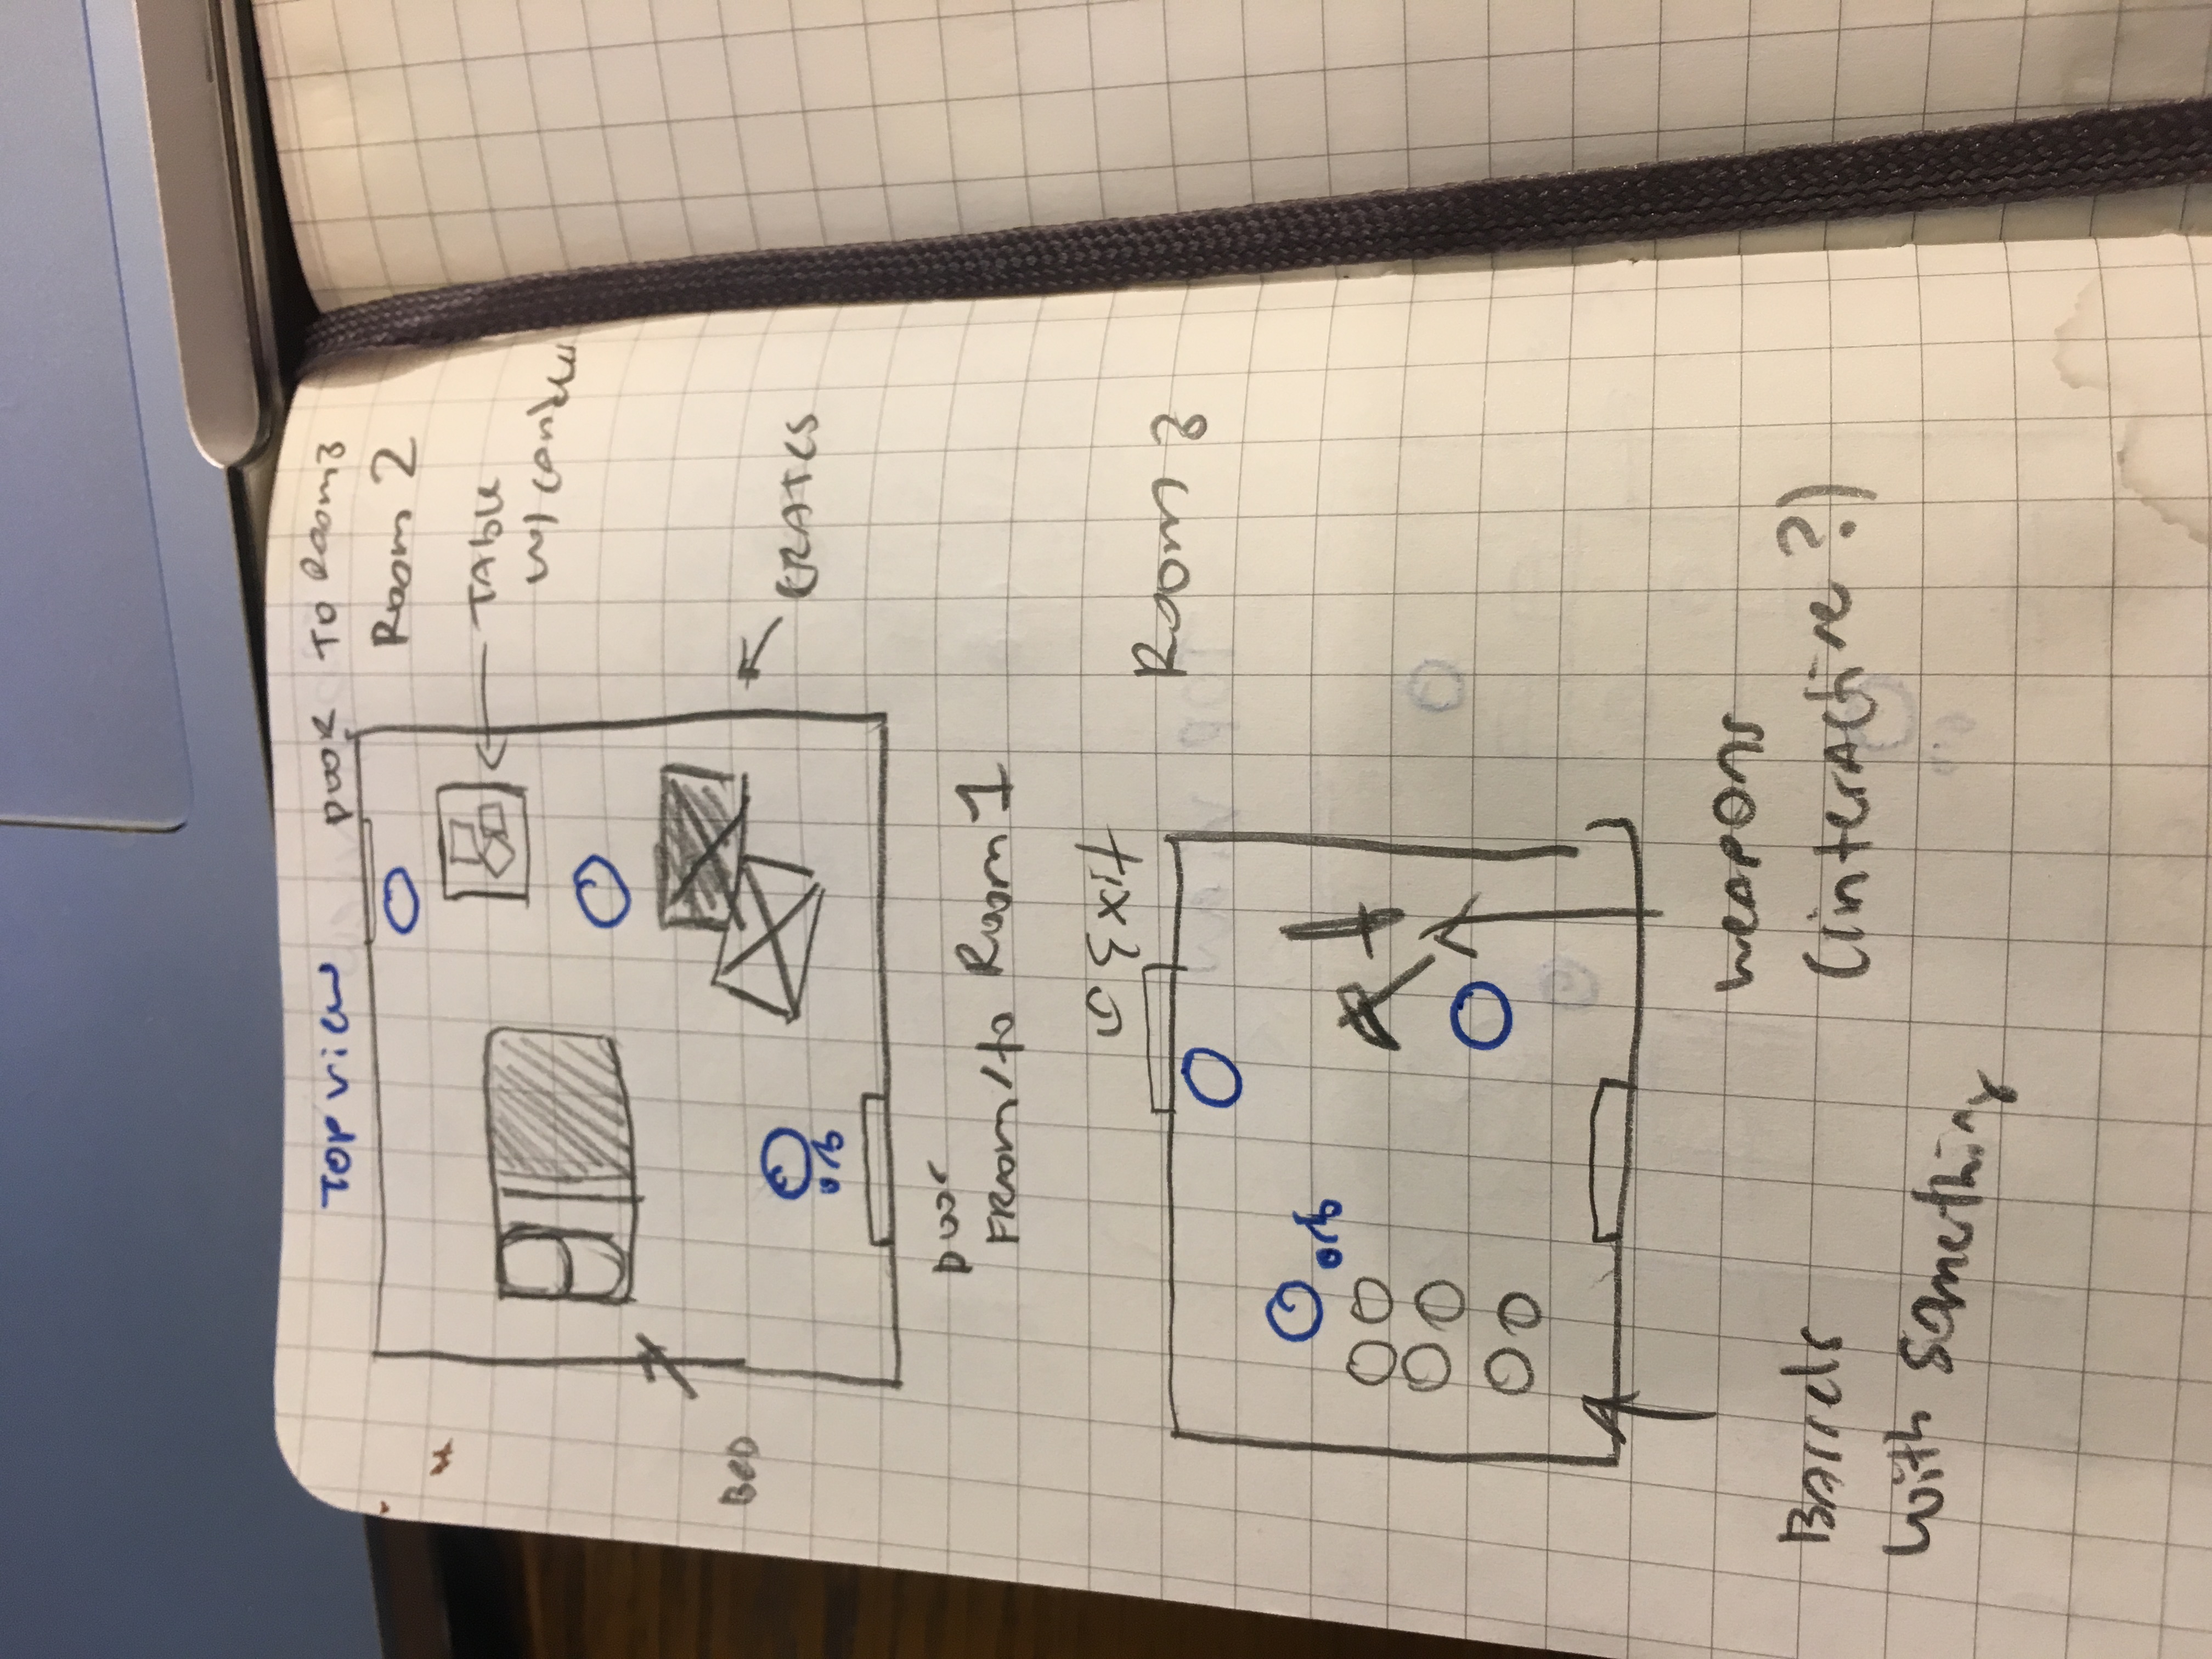 TOP VIEW
DOOR TO ROOM 3
Room 2
TABLE
w/ candles
BED
CRATES
orb
Door
FROM/to Room 1
Exit
Room 3
orb
WEAPONS
(interActive?)
BArrels
with something